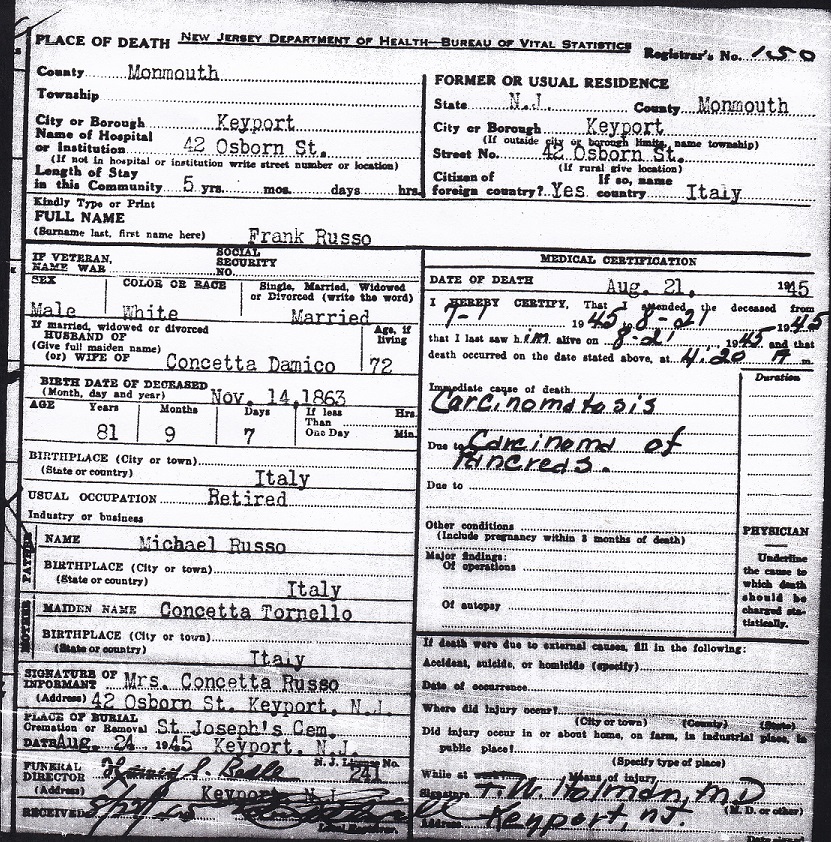 NEW JERSEY DEPARTMENT OF HEALTH—BUREAU OF VITAL STATISTICS
Registrar's No. 150
PLACE OF DEATH
County Monmouth
Township
City or Borough Keyport
Name of Hospital
or Institution 42 Osborn St.
(If not in hospital or institution write street number or location)
Length of Stay
in this Community 5 yrs. mos. days hrs.
FORMER OR USUAL RESIDENCE
State N.J. County Monmouth
City or Borough Keyport
(If outside city or borough limits, name township)
Street No. 42 Osborn St.
(If rural give location)
Citizen of
foreign country? Yes If so, name
country Italy
Kindly Type or Print
FULL NAME
(Surname last, first name here) Frank Russo
IF VETERAN,
NAME WAR
SOCIAL
SECURITY
NO.
SEX
Male
COLOR OR RACE
White
Single, Married, Widowed
or Divorced (write the word)
Married
If married, widowed or divorced
HUSBAND OF
(Give full maiden name)
(or) WIFE OF Concetta Damico
Age, if
living
72
BIRTH DATE OF DECEASED
(Month, day and year) Nov. 14, 1863
AGE Years Months Days If less Hrs.
Than
One Day Min.
81 9 7
BIRTHPLACE (City or town)
(State or country) Italy
USUAL OCCUPATION Retired
Industry or business
FATHER
NAME Michael Russo
BIRTHPLACE (City or town)
(State or country) Italy
MOTHER
MAIDEN NAME Concetta Tornello
BIRTHPLACE (City or town)
(State or country) Italy
SIGNATURE OF
INFORMANT Mrs. Concetta Russo
(Address) 42 Osborn St. Keyport, N.J.
PLACE OF BURIAL
Cremation or Removal St. Joseph's Cem.
DATE Aug. 24 1945 Keyport, N.J.
FUNERAL
DIRECTOR
N.J. License No.
241
(Address) Keyport, N.J.
RECEIVED
Local Registrar
MEDICAL CERTIFICATION
DATE OF DEATH Aug. 21, 1945
I HEREBY CERTIFY, That I attended the deceased from
7-1 1945 to 8-21 1945
that I last saw him alive on 8-21 1945 and that
death occurred on the date stated above, at 4:20 m.
Duration
Immediate cause of death
Carcinomatosis
Due to Carcinoma of
Pancreas.
Due to
Other conditions
(Include pregnancy within 3 months of death)
Major findings:
Of operations
Of autopsy
PHYSICIAN
Underline
the cause to
which death
should be
charged sta-
tistically.
If death were due to external causes, fill in the following:
Accident, suicide, or homicide (specify)
Date of occurrence
Where did injury occur?
(City or town) (County) (State)
Did injury occur in or about home, on farm, in industrial place, in
public place?
(Specify type of place)
While at work Means of injury
Signature F. W. Holman, M D
(M. D. or other)
Address Keyport, N.J.
Date signed